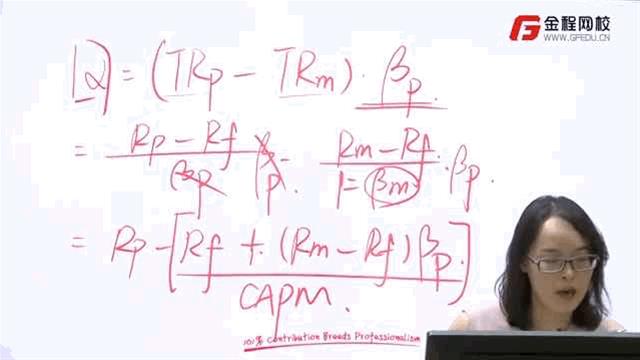 金程网校
WWW.GFEDU.CN
|α| = (TRp - TRm) · βp.
= Rp - Rf / βp βp - Rm - Rf / 1 = βm · βp.
= Rp - [Rf + (Rm - Rf) βp.]
CAPM.
Contribution Breeds Professionalism